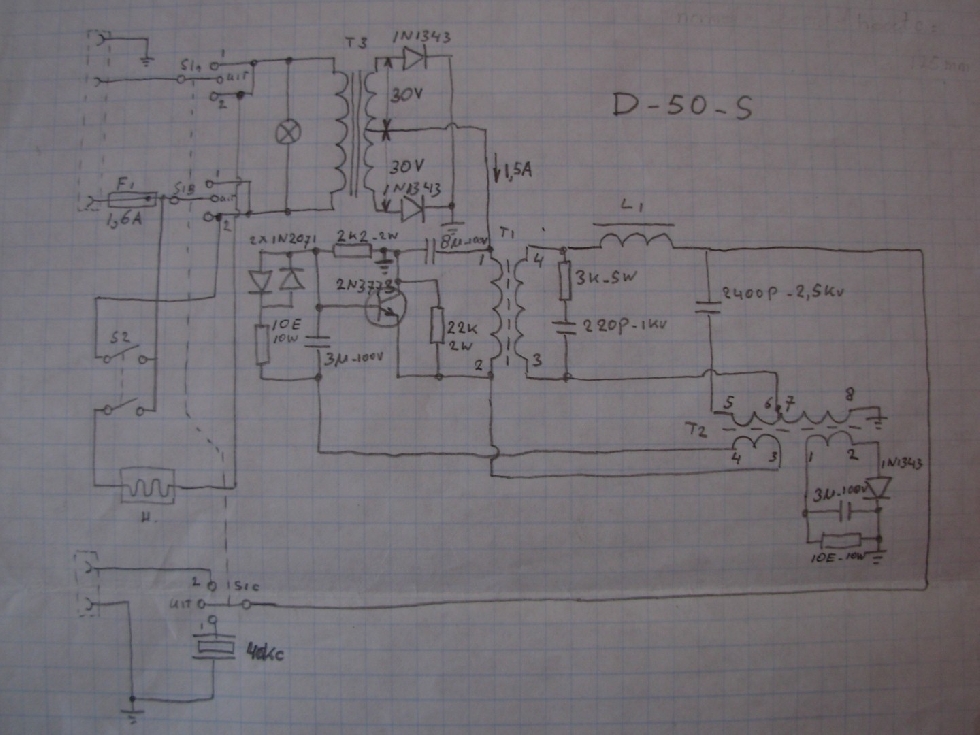 D-50-S
T3
1N1343
S1A
1
UIT
2
30V
30V
1N1343
1,5A
F1
1,6A
S1B
1
UIT
2
L1
2x1N2071
2K2-2W
8µ-100V
T1
1
4
3K-5W
2400P-2,5KV
2N3778
10E
10W
22K
2W
220P-1KV
3µ-100V
S2
2
3
5
6
7
8
T2
4
3
1
2
1N1343
3µ-100V
10E-10W
H
2
S1C
UIT
1
40KC